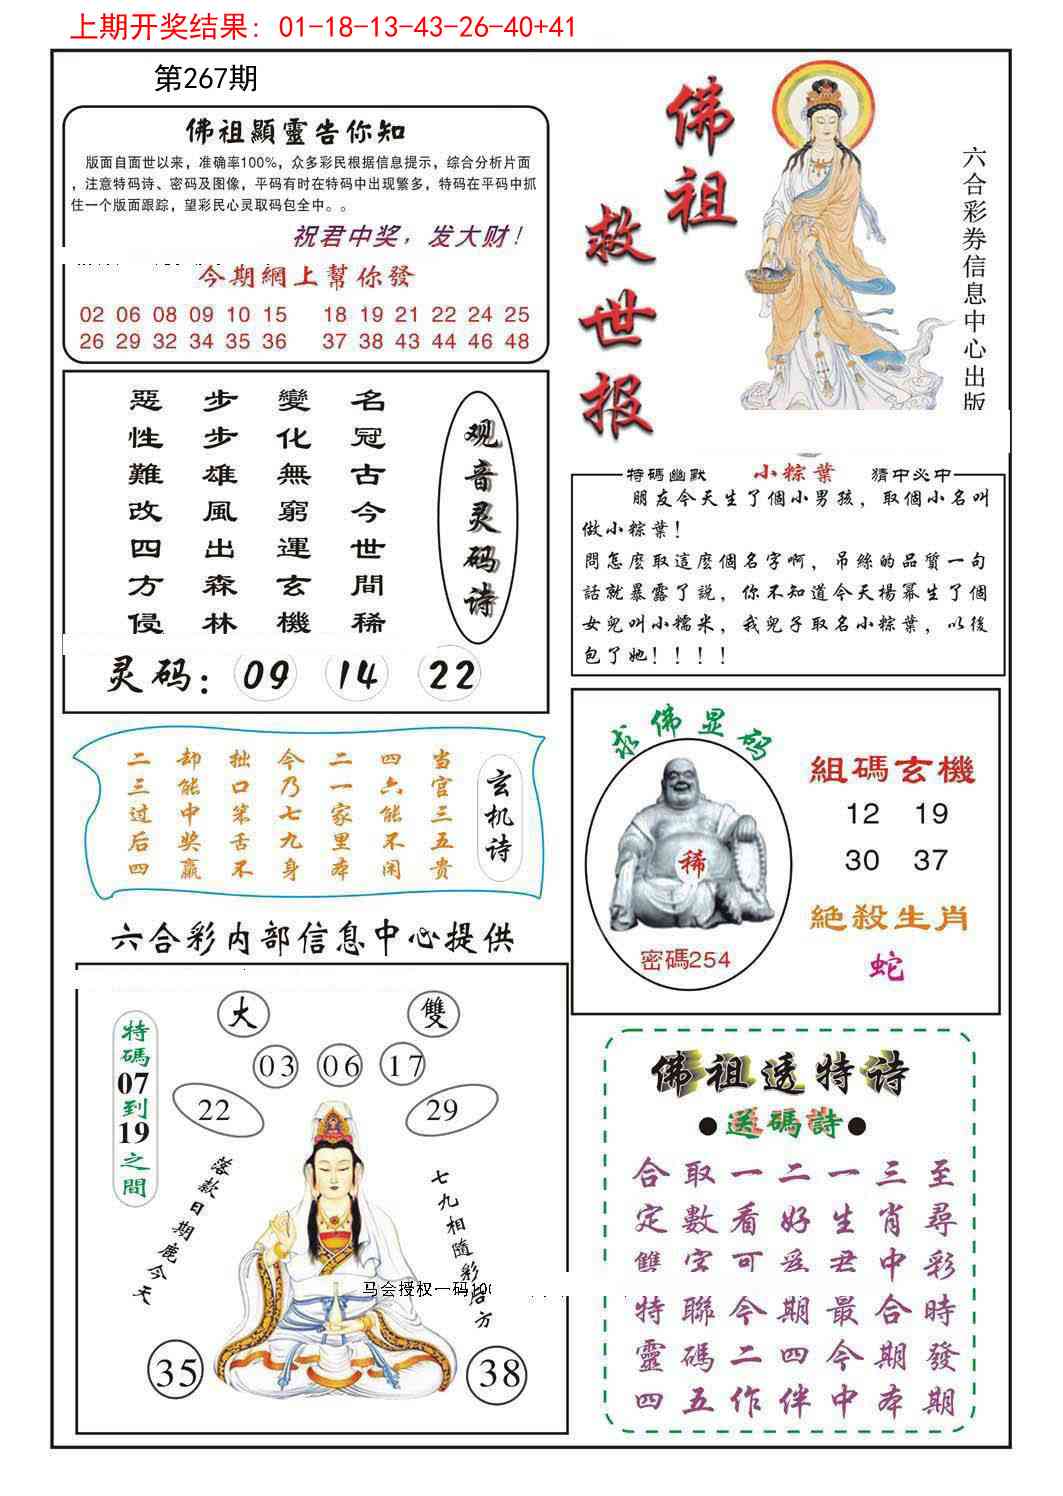 上期开奖结果：01-18-13-43-26-40+41
第267期
佛祖顯靈告你知
版面自面世以来，准确率100%，众多彩民根据信息提示，综合分析片面
，注意特码诗、密码及图像，平码有时在特码中出现繁多，特码在平码中抓
住一个版面跟踪，望彩民心灵取码包全中。。
祝君中奖，发大财！
今期網上幫你發
02 06 08 09 10 15 18 19 21 22 24 25
26 29 32 34 35 36 37 38 43 44 46 48
佛祖
救世报
六合彩券信息中心出版
观音灵码诗
名冠古今世間稀
變化無窮運玄機
步步雄風出森林
惡性難改四方侵
灵码：09 14 22
特碼幽默 小粽葉 猜中必中
朋友今天生了個小男孩，取個小名叫
做小粽葉！
問怎麼取這麼個名字啊，吊絲的品質一句
話就暴露了説，你不知道今天楊冪生了個
女兒叫小糯米，我兒子取名小粽葉，以後
包了她！！！！
玄机诗
当官三五贵
四六能不闲
二一家里本
今乃七九身
拙口笨舌不
却能中奖赢
二三过后四
求佛显码
稀
密碼254
組碼玄機
12 19
30 37
絕殺生肖
蛇
六合彩内部信息中心提供
大 雙
03 06 17
22 29
特碼07到19之間
落款日期鹿今天
七九相隨彩后方
马会授权一码
35 38
佛祖透特诗
●送碼詩●
至尋彩時發期
三肖中合期本
一生君最今中
二好爲期四伴
一看可今二作
取數字聯碼五
合定雙特靈四